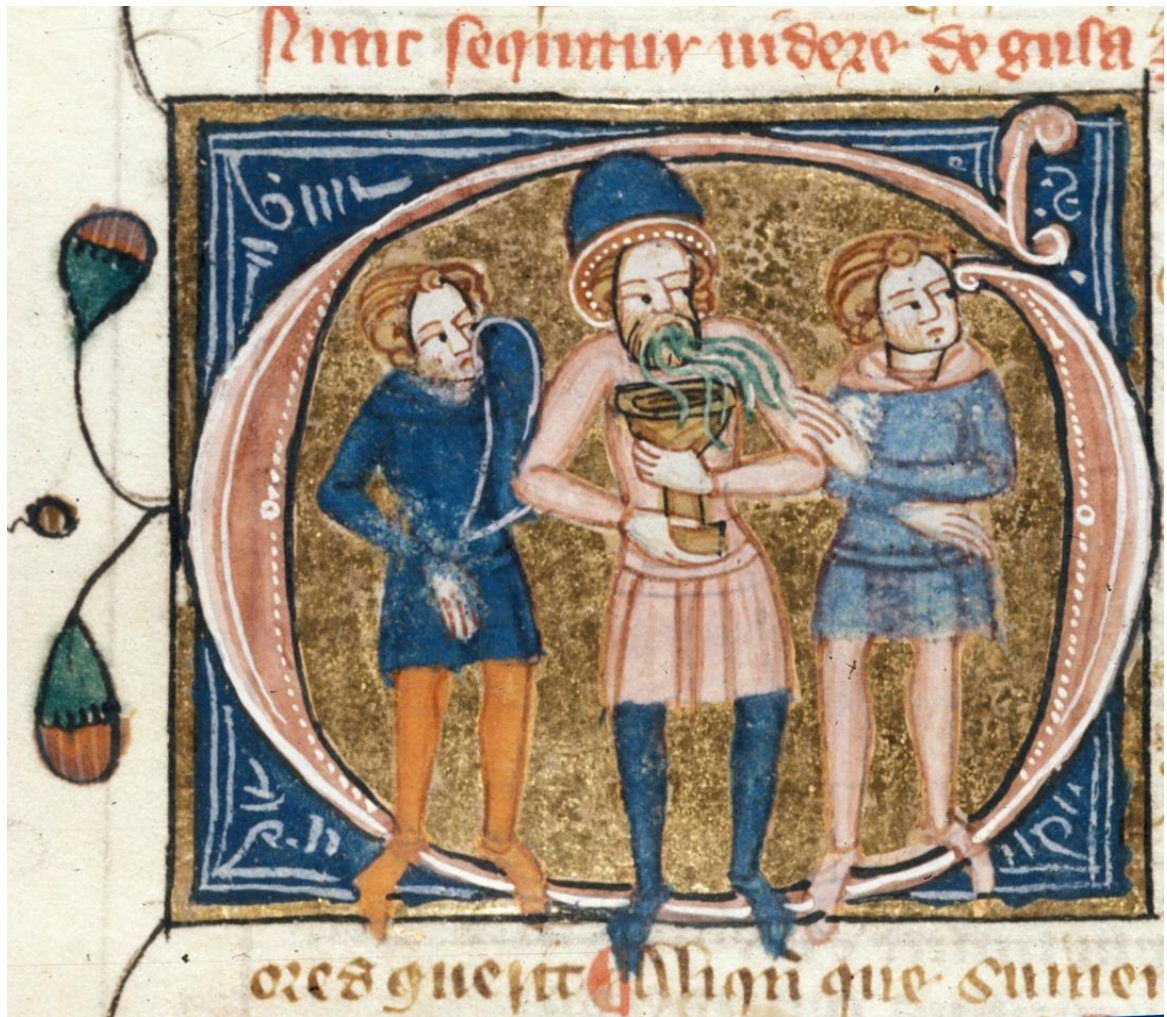 Nunc sequitur uidere de gula
ores querit Aliqn que sumen